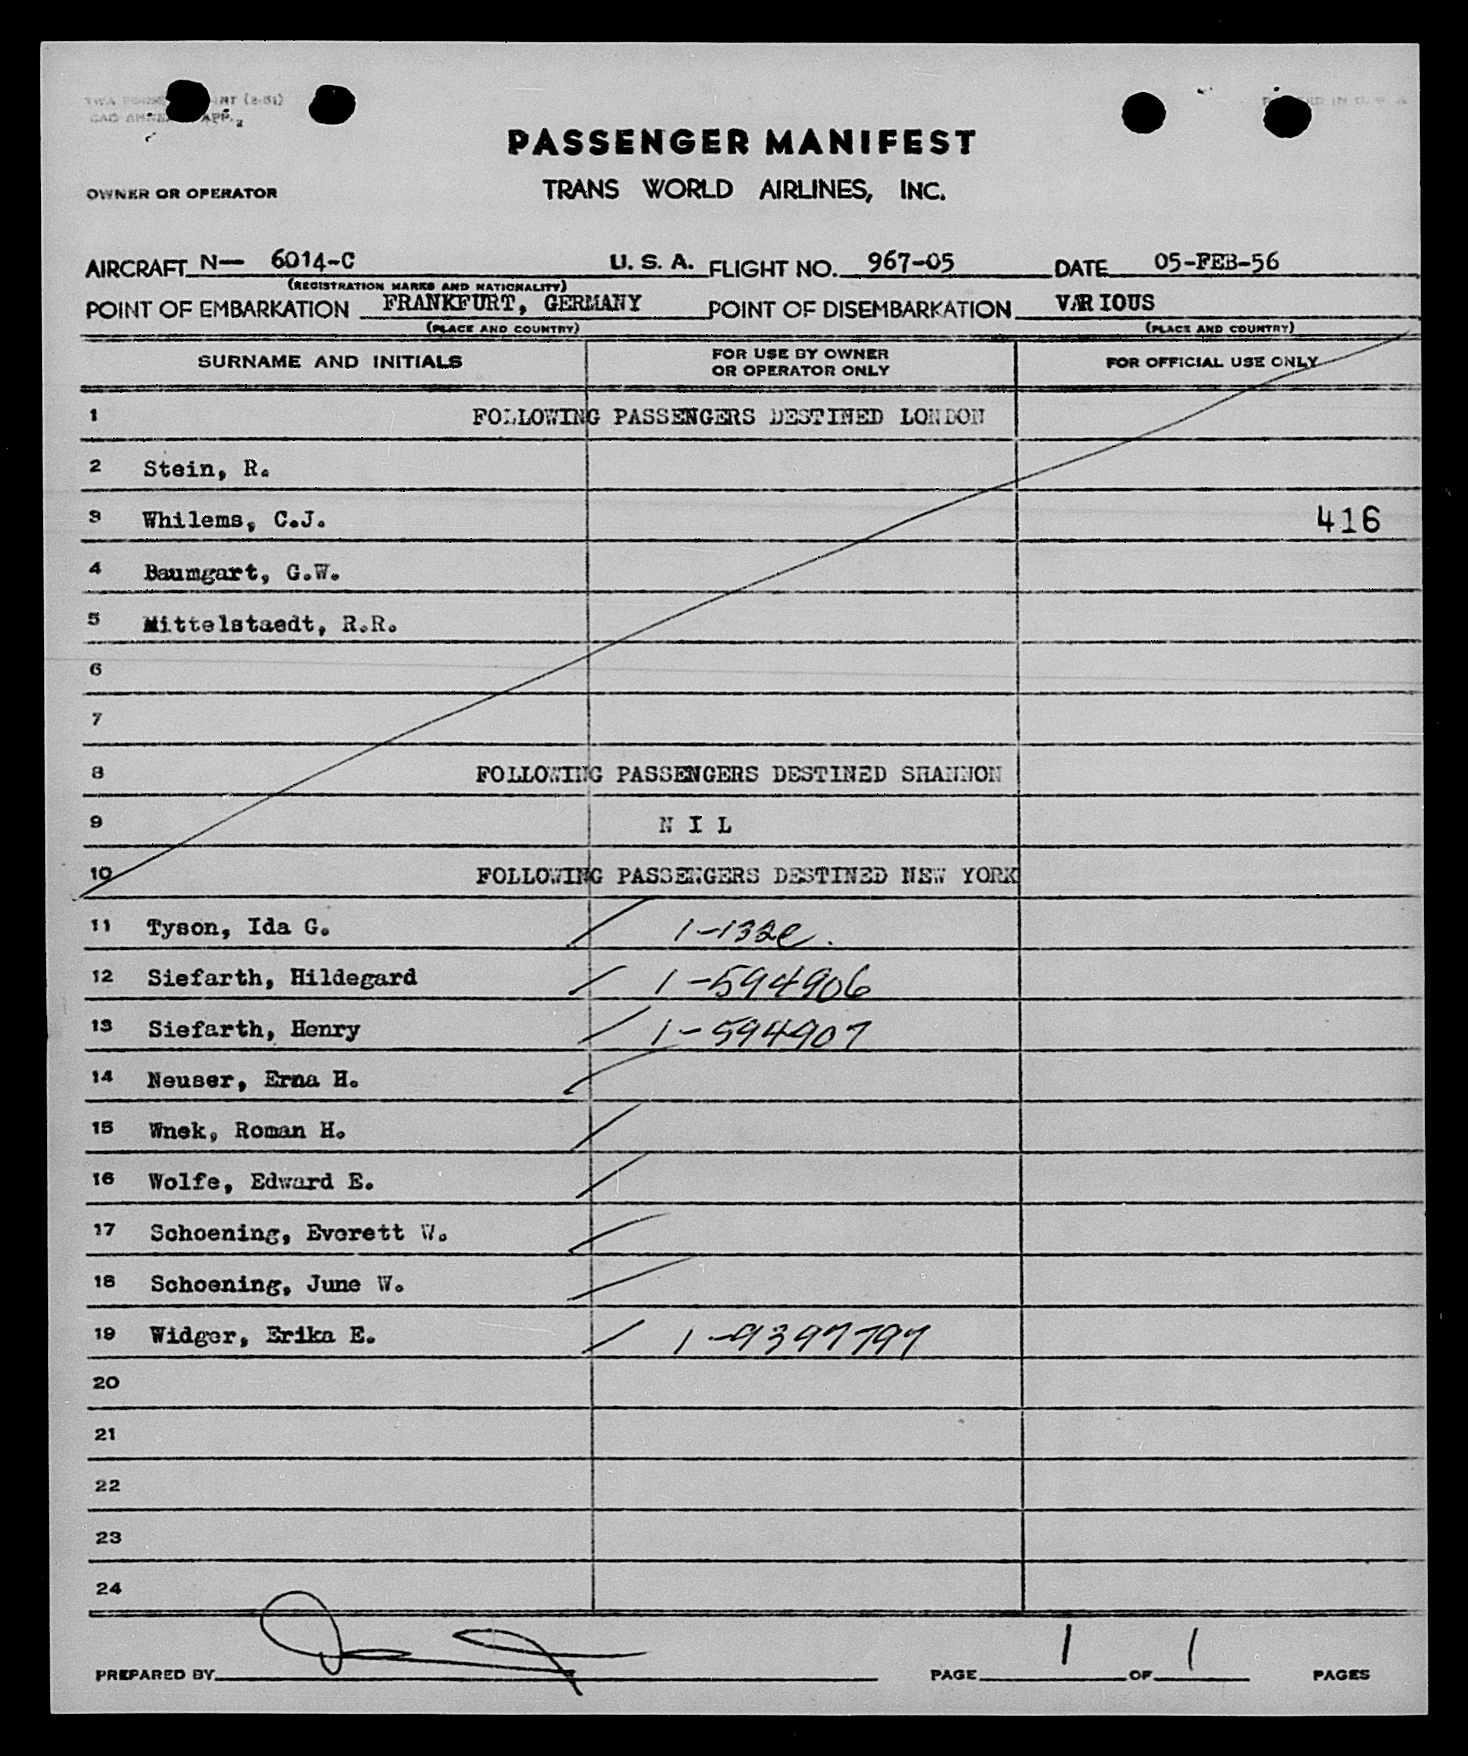 PASSENGER MANIFEST
OWNER OR OPERATOR TRANS WORLD AIRLINES, INC.
AIRCRAFT N— 6014-C U. S. A. FLIGHT NO. 967-05 DATE 05-FEB-56
(REGISTRATION MARKS AND NATIONALITY)
POINT OF EMBARKATION FRANKFURT, GERMANY POINT OF DISEMBARKATION VARIOUS
(PLACE AND COUNTRY) (PLACE AND COUNTRY)
SURNAME AND INITIALS FOR USE BY OWNER OR OPERATOR ONLY FOR OFFICIAL USE ONLY
1 FOLLOWING PASSENGERS DESTINED LONDON
2 Stein, R.
3 Whilems, C.J. 416
4 Baumgart, G.W.
5 Mittelstaedt, R.R.
6
7
8 FOLLOWING PASSENGERS DESTINED SHANNON
9 N I L
10 FOLLOWING PASSENGERS DESTINED NEW YORK
11 Tyson, Ida G. / 1-132e.
12 Siefarth, Hildegard / 1-594906
13 Siefarth, Henry / 1-594907
14 Neuser, Erna H. /
15 Wnek, Roman H. /
16 Wolfe, Edward E. /
17 Schoening, Everett W. /
18 Schoening, June W. /
19 Widger, Erika E. / 1-9397797
20
21
22
23
24
PREPARED BY PAGE 1 OF 1 PAGES